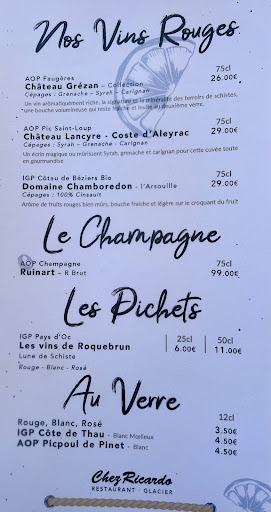 Nos Vins Rouges
75cl
AOP Faugères
Château Grézan – Collection 26.00€
Cépages : Grenache – Syrah – Carignan
Un vin arômatiquement riche, la signature et la minéralité des terroirs de schistes,
une bouche volumineuse qui reste fraîche et invite au deuxième verre.
AOP Pic Saint-Loup 75cl
Château Lancyre - Coste d'Aleyrac 29.00€
Cépages : Syrah – Grenache - Carignan
Un écrin magique ou mûrissent Syrah, grenache et carignan pour cette cuvée toute
en gourmandise
IGP Côtau de Béziers Bio 75cl
Domaine Chamboredon - l'Arsouille 29.00€
Cépages : 100% Cinsault
Arôme de fruits rouges bien mûrs, bouche fraîche et légère sur le croquant du fruit
Le Champagne
AOP Champagne 75cl
Ruinart – R Brut 99.00€
Les Pichets
IGP Pays d'Oc 25cl 50cl
Les vins de Roquebrun 6.00€ 11.00€
Lune de Schiste
Rouge - Blanc - Rosé
Au Verre
12cl
Rouge, Blanc, Rosé 3.50€
IGP Côte de Thau - Blanc Mœlleux 4.50€
AOP Picpoul de Pinet - Blanc 4.50€
Chez Ricardo
RESTAURANT · GLACIER